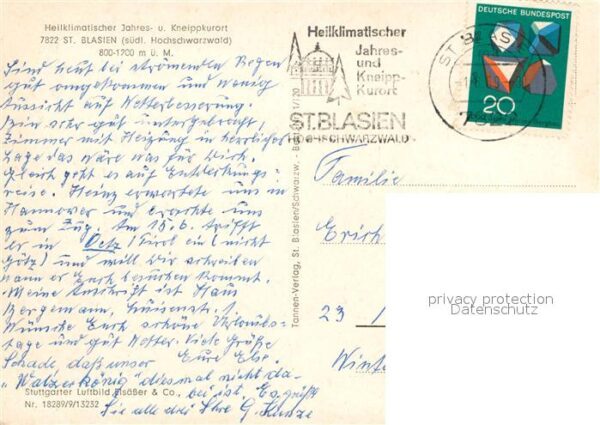 Heilklimatischer Jahres- u. Kneippkurort
7822 ST. BLASIEN (südl. Hochschwarzwald)
800-1200 m ü. M.
Sind heut bei strömenden Regen
gut angekommen und wenig
Aussicht auf Wetterbesserung.
Bin sehr gut untergebracht,
Zimmer mit Heizung in herrlicher
Lage das wäre was für Dich.
Gleich geht es auf Entdeckungs-
reise. Heinz erwartete uns in
Hannover und brachte uns
zum Zug. Am 15.6. trifft
er in Oetz/Tirol ein (nicht
Götz) und will Dir schreiben
wann er Euch besuchen kommt.
Meine Anschrift ist Haus
Bergemann, Luisenstr. 1.
Wünsche Euch schöne Urlaubs-
tage und gut Wetter. Viele Grüße
Eure Else.
Schade, daß unser
„Walzerkönig" diesmal nicht da-
bei ist. Es grüßt
Sie alle drei Ihre G. Kunze
Stuttgarter Luftbild Elsäßer & Co.,
Nr. 18289/9/13232
Tannen-Verlag, St. Blasien/Schwarzw.
Heilklimatischer
Jahres-
und
Kneipp-
Kurort
ST. BLASIEN
HOCHSCHWARZWALD
ST. BLASIEN
DEUTSCHE BUNDESPOST
20
Familie
Erich
23
privacy protection
Datenschutz